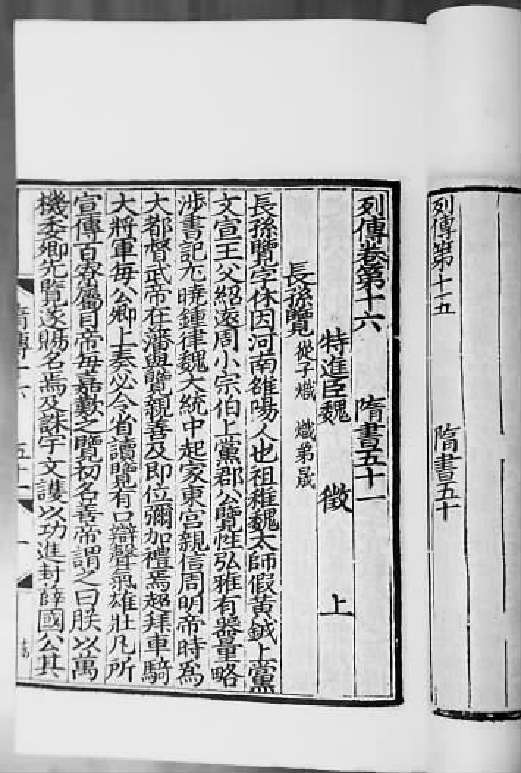 列傳第十五 隋書五十
列傳卷第十六 隋書五十一
特進臣魏 徵 上
長孫覽 從子熾 熾弟晟
長孫覽字休因河南雒陽人也祖稚魏太師假黃鉞上黨
文宣王父紹遠周小宗伯上黨郡公覽性弘雅有器量略
涉書記尤曉鍾律魏大統中起家東宮親信周明帝時爲
大都督武帝在藩與覽親善及即位彌加禮焉超拜車騎
大將軍每公卿上奏必令省讀覽有口辯聲氣雄壯凡所
宣傳百寮屬目帝每嘉歎之覽初名善帝謂之曰朕以萬
機委卿先覽遂賜名焉及誅宇文護以功進封薛國公其